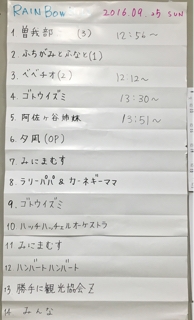 RAINBOW 2016.09.25 SUN
1 曽我部 (3) 12:56〜
2 ふちがみとふなと(1)
3 ベベチオ(2) 12:12〜
4 ゴトウイズミ 13:30〜
5 阿佐ヶ谷姉妹 13:51〜
6 夕凪(OP)
7 みにまむす
8 ラリーパパ&カーネギーママ
9 ゴトウイズミ
10 ハッチハッチェルオーケストラ
11 みにまむす
12 ハンバートハンバート
13 勝手に観光協会Z
14 みんな